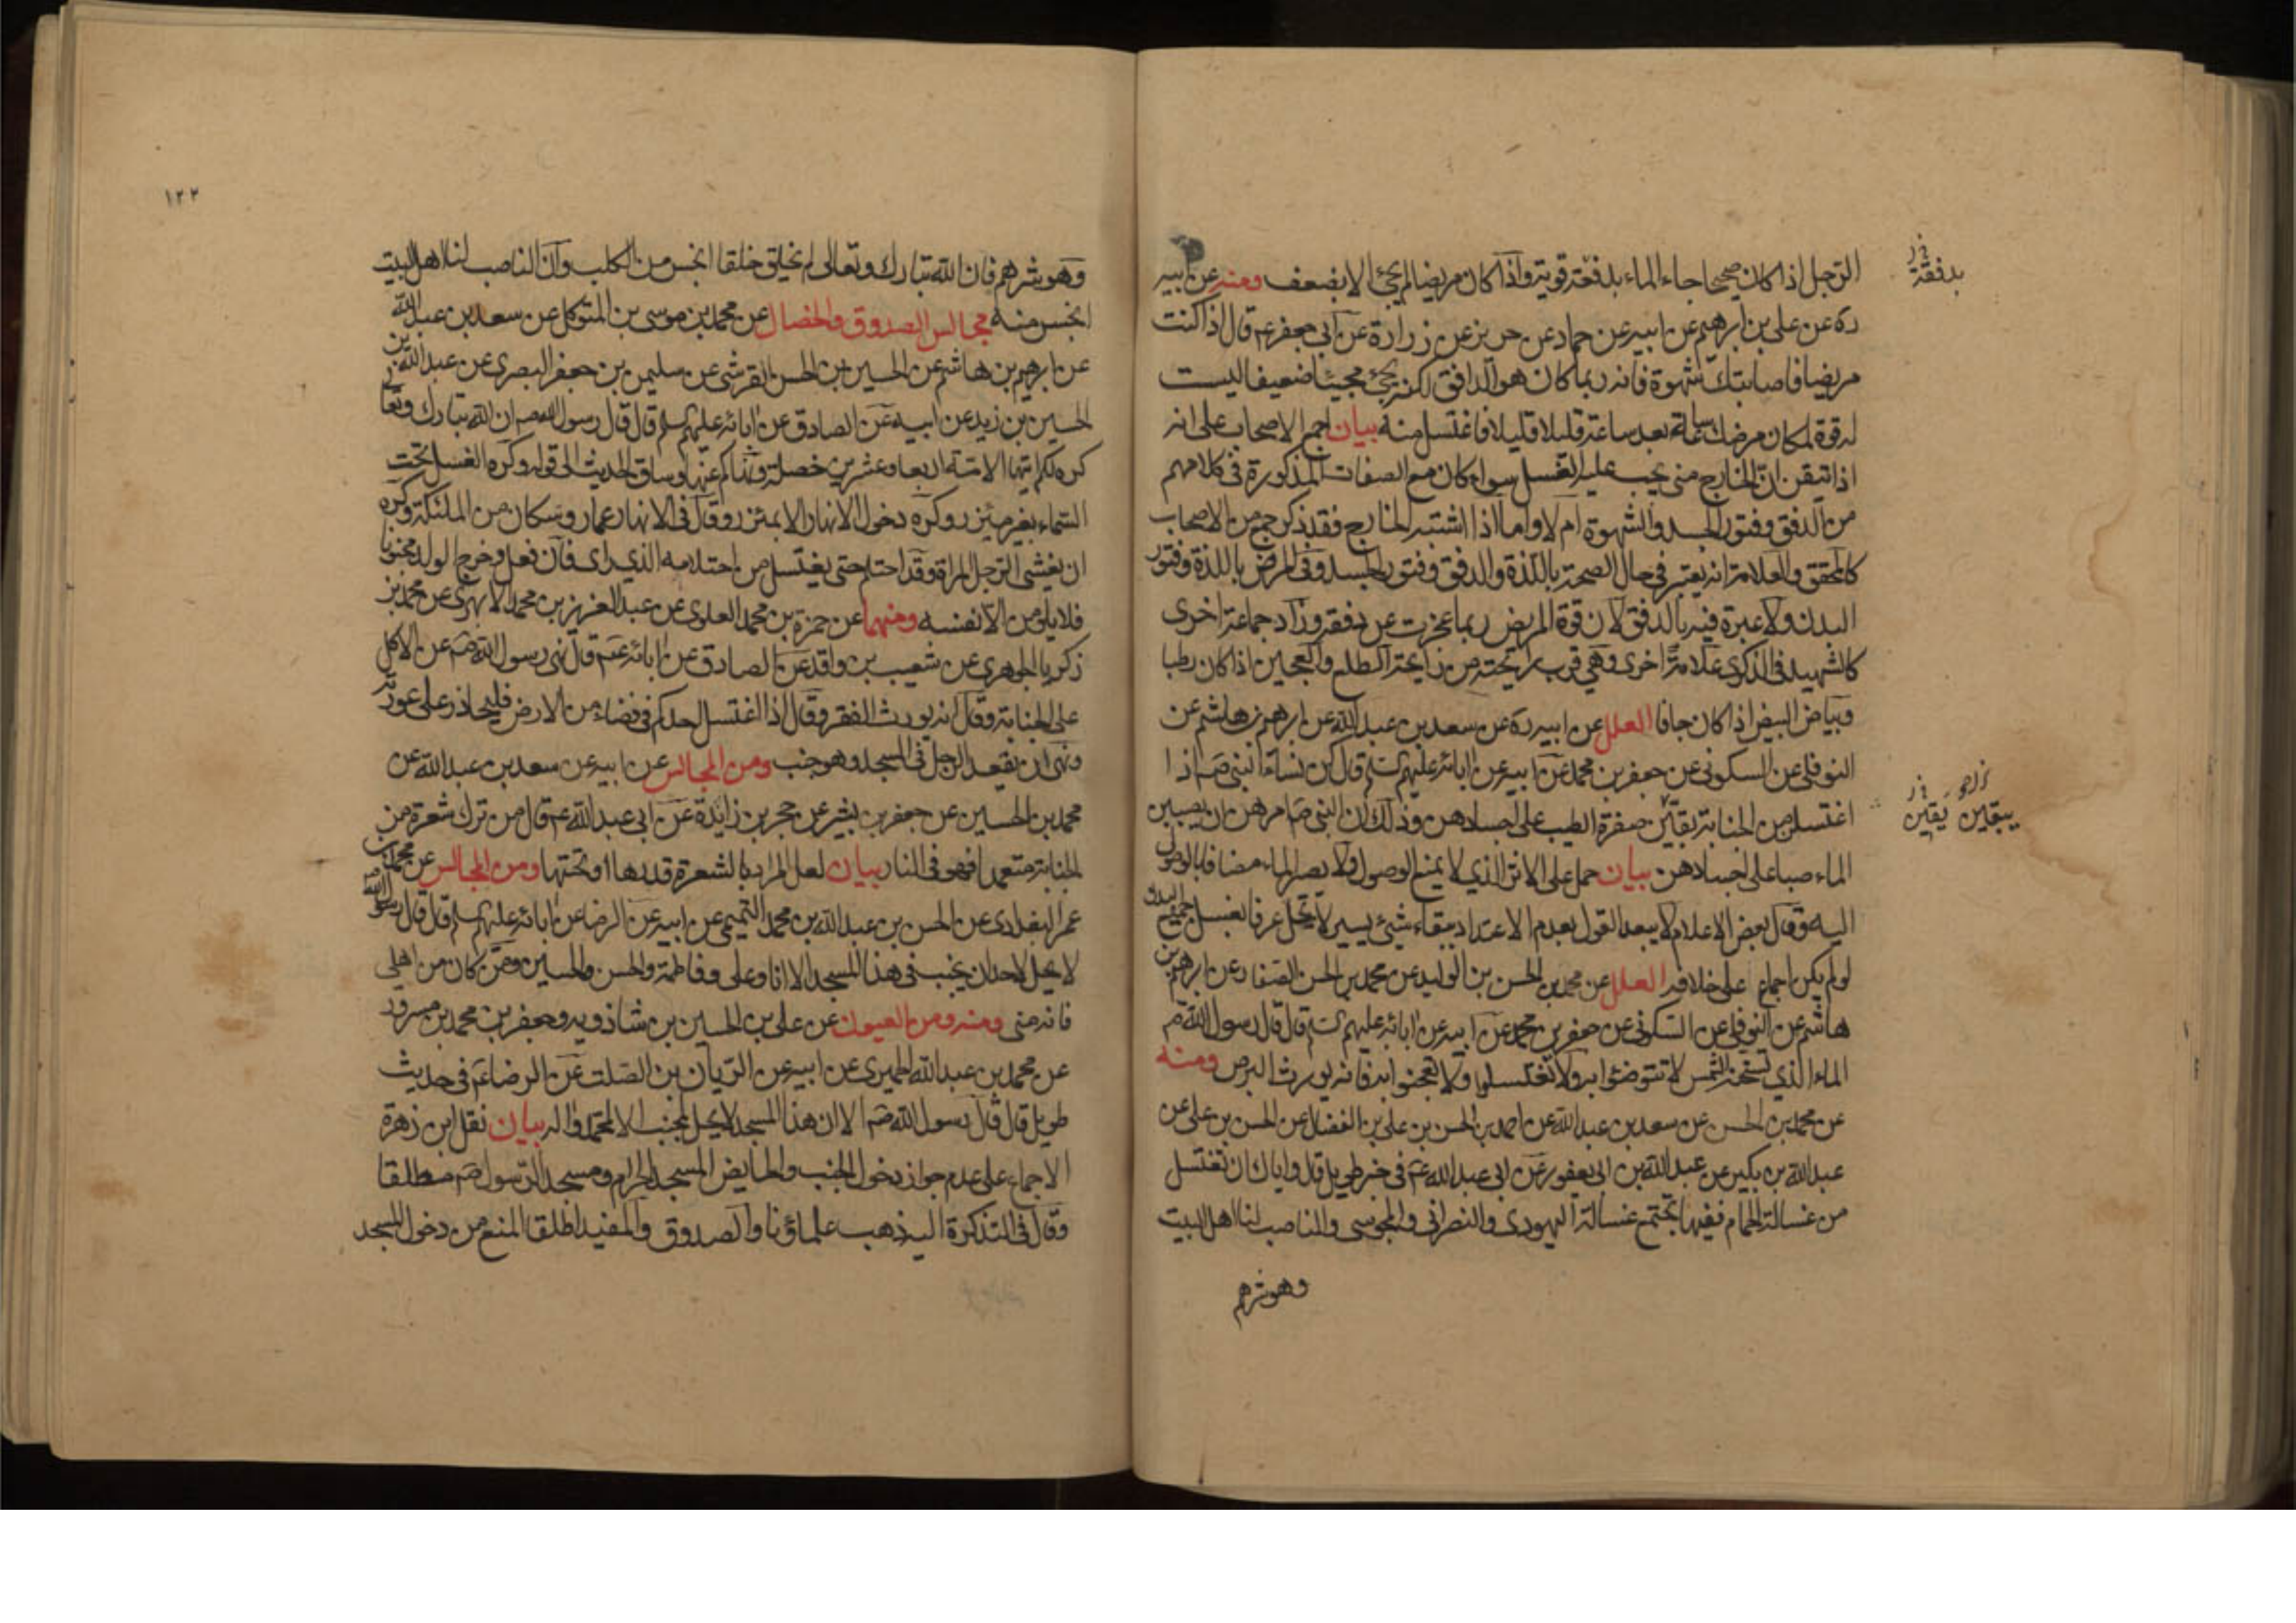 الرجل اذا كان صحيحا جاء الماء بدفعة قوية واذا كان مريضا لم يجئ الا بضعف ومنه عن ابيه
ره عن علي بن ابرهيم عن ابيه عن حماد عن حريز عن زرارة عن ابي جعفر عم قال اذا كنت
مريضا فاصابتك شهوة فانه ربما كان هو الدافق لكنه يجئ مجيئا ضعيفا ليست
له قوة لمكان مرضك ساعة بعد ساعة قليلا قليلا فاغتسل منه بيان اجمع الاصحاب على انه
اذا تيقن ان الخارج مني يجب عليه الغسل سواء كان مع الصفات المذكورة في كلامهم
من الدفق وفتور الجسد والشهوة ام لا واما اذا اشتبه الخارج فقد ذكر جمع من الاصحاب
كالمحقق والعلامة انه يعتبر في حال الصحة باللذة والدفق وفتور الجسد وفي المرض باللذة وفتور
البدن ولا عبرة فيه بالدفق لان قوة المريض ربما عجزت عن دفقه وزاد جماعة اخرى
كالشهيد في الذكرى علامة اخرى وهي قرب رايحته من رايحة الطلع والعجين اذا كان رطبا
وبياض البيض اذا كان جافا العلل عن ابيه ره عن سعد بن عبد الله عن ابرهيم بن هاشم عن
النوفلي عن السكوني عن جعفر بن محمد عن ابيه عن ابائه عليهم السلم قال كن نساء النبي صم اذا
اغتسلن من الجنابة بقين صفرة الطيب على اجسادهن وذلك ان النبي صم امرهن ان يصببن
الماء صبا على اجسادهن بيان حمل على الاثر الذي لا يمنع الوصول ولا يصير الماء مضافا بالوصول
اليه وقال بعض الاعلام لا يبعد القول بعدم الاعتداد ببقاء شيئ يسير لا يخل عرفا بغسل جميع البدن
لو لم يكن اجماع على خلافه العلل عن محمد بن الحسن بن الوليد عن محمد بن الحسن الصفار عن ابرهيم بن
هاشم عن النوفلي عن السكوني عن جعفر بن محمد عن ابيه عن ابائه عليهم السلم قال قال رسول الله صم
الماء الذي تسخنه الشمس لا تتوضئوا به ولا تغتسلوا ولا تعجنوا به فانه يورث البرص ومنه
عن محمد بن الحسن عن سعد بن عبد الله عن احمد بن الحسن بن علي بن الفضل عن الحسن بن علي عن
عبد الله بن بكير عن عبد الله بن ابي يعفور عن ابي عبد الله عم في خبر طويل قال واياك ان تغتسل
من غسالة الحمام ففيها تجتمع غسالة اليهودي والنصراني والمجوسي والناصب لنا اهل البيت
وهو شرهم
بدفقة
يبقين يقين
١٢٢
وهو شرهم فان الله تبارك وتعالى لم يخلق خلقا انجس من الكلب وان الناصب لنا اهل البيت
انجس منه مجالس الصدوق والخصال عن محمد بن موسى بن المتوكل عن سعد بن عبد الله
عن ابرهيم بن هاشم عن الحسين بن الحسن القرشي عن سليمن بن جعفر البصري عن عبد الله بن
الحسين بن زيد عن ابيه عن الصادق عن ابائه عليهم السلم قال قال رسول الله صم ان الله تبارك وتعا
كره لكم ايتها الامة اربعا وعشرين خصلة ونهاكم عنها وساق الحديث الى قوله وكره الغسل تحت
السماء بغير مئزر وكره دخول الانهار الا بمئزر وقال في الانهار عمار وسكان من الملئكة وكره
ان يغشى الرجل المراة وقد احتلم حتى يغتسل من احتلامه الذي راى فان فعل وخرج الولد مجنونا
فلا يلومن الا نفسه ومنهما عن حمزة بن محمد العلوي عن عبد العزيز بن محمد الابهري عن محمد بن
ذكريا الجوهري عن شعيب بن واقد عن الصادق عن ابائه عم قال نهى رسول الله صم عن الاكل
على الجنابة وقال انه يورث الفقر وقال اذا اغتسل احدكم في فضاء من الارض فليحاذر على عورته
ونهى ان يقعد الرجل في المسجد وهو جنب ومن المجالس عن ابيه عن سعد بن عبد الله عن
محمد بن الحسين عن جعفر بن بشير عن حجر بن زايدة عن ابي عبد الله عم قال من ترك شعرة من
الجنابة متعمدا فهو في النار بيان لعل المراد بالشعرة قدرها او تحتها ومن المجالس عن محمد بن
عمر البغدادي عن الحسن بن عبد الله بن محمد التميمي عن ابيه عن الرضا عن ابائه عليهم السلم قال قال رسول الله صم
لا يحل لاحد ان يجنب في هذا المسجد الا انا وعلي وفاطمة والحسن والحسين ومن كان من اهلي
فانه مني ومنه ومن العيون عن علي بن الحسين بن شاذويه وجعفر بن محمد بن مسرور
عن محمد بن عبد الله الحميري عن ابيه عن الريان بن الصلت عن الرضا عم في حديث
طويل قال قال رسول الله صم الا ان هذا المسجد لا يحل لجنب الا لمحمد واله بيان نقل ابن زهرة
الاجماع على عدم جواز دخول الجنب والحايض المسجد الحرام ومسجد الرسول صم مطلقا
وقال في التذكرة اليه ذهب علماؤنا والصدوق والمفيد اطلقا المنع من دخول المسجد